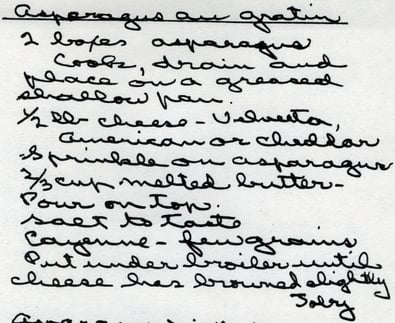 Asparagus au gratin
2 boxes asparagus
Cook, drain and
place on a greased
shallow pan.
1/2 lb cheese - Velveeta,
American or cheddar
Sprinkle on asparagus
2/3 cup melted butter -
Pour on top.
salt to taste
Cayenne - few grains
Put under broiler until
cheese has browned slightly